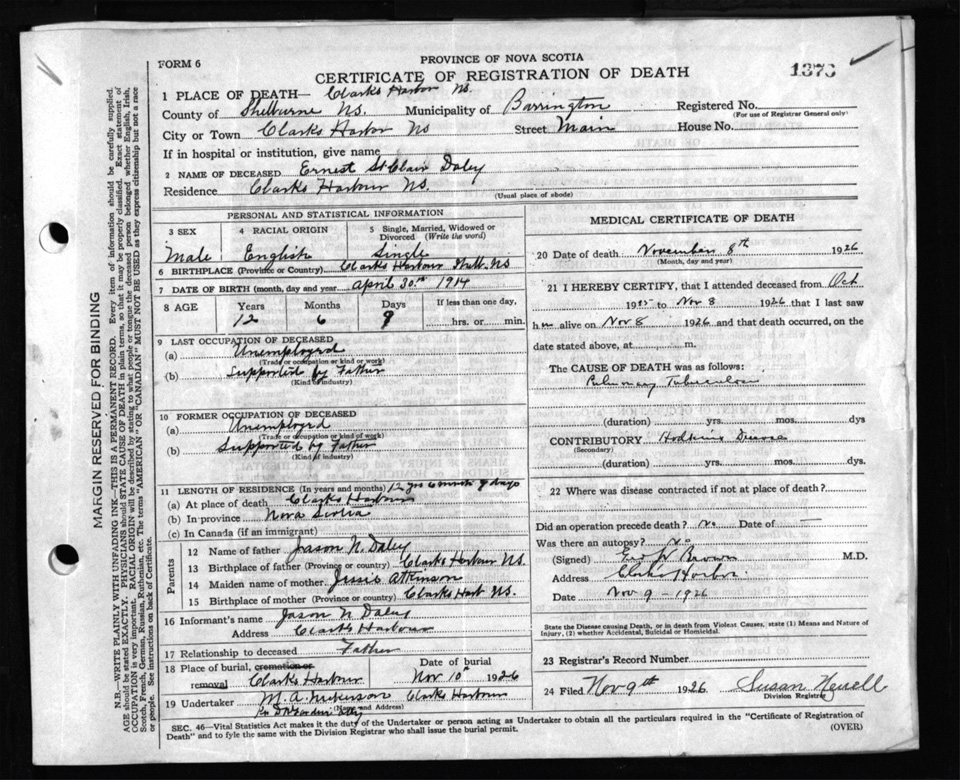 FORM 6
PROVINCE OF NOVA SCOTIA
CERTIFICATE OF REGISTRATION OF DEATH
1373
1 PLACE OF DEATH— Clarks Harbor NS.
County of Shelburne NS. Municipality of Barrington Registered No.
(For use of Registrar General only)
City or Town Clarks Harbor NS Street Main House No.
If in hospital or institution, give name
2 NAME OF DECEASED Ernest St Clair Daley
Residence Clarks Harbour NS.
(Usual place of abode)
PERSONAL AND STATISTICAL INFORMATION
3 SEX
Male
4 RACIAL ORIGIN
English
5 Single, Married, Widowed or Divorced (Write the word)
Single
6 BIRTHPLACE (Province or Country) Clarks Harbour Shelb. NS
7 DATE OF BIRTH (month, day and year) April 30th 1914
8 AGE Years Months Days If less than one day,
12 6 9 hrs. or min.
9 LAST OCCUPATION OF DECEASED
(a) Unemployed
(Trade or occupation or kind of work)
(b) Supported by Father
(Kind of industry)
10 FORMER OCCUPATION OF DECEASED
(a) Unemployed
(Trade or occupation or kind of work)
(b) Supported by Father
(Kind of industry)
11 LENGTH OF RESIDENCE (In years and months) 12 yrs 6 month 9 days
(a) At place of death Clarks Harbour
(b) In province Nova Scotia
(c) In Canada (if an immigrant)
Parents
12 Name of father Jason N. Daley
13 Birthplace of father (Province or country) Clarks Harbour NS.
14 Maiden name of mother Jessie Atkinson
15 Birthplace of mother (Province or country) Clarks Harb NS.
16 Informant's name Jason N Daley
Address Clarks Harbour
17 Relationship to deceased Father
18 Place of burial, cremation or removal Clarks Harbour
Date of burial Nov 10th 1926
19 Undertaker M. A. Nickerson Clarks Harbour
(Name and Address)
MEDICAL CERTIFICATE OF DEATH
20 Date of death November 8th 1926
(Month, day and year)
21 I HEREBY CERTIFY, that I attended deceased from Oct
1925 to Nov 8 1926 that I last saw
him alive on Nov 8 1926 and that death occurred, on the
date stated above, at m.
The CAUSE OF DEATH was as follows:
Pulmonary Tuberculosis
(duration) yrs. mos. dys
CONTRIBUTORY Hodkins Disease
(Secondary)
(duration) yrs. mos. dys.
22 Where was disease contracted if not at place of death?
Did an operation precede death? No Date of —
Was there an autopsy? No
(Signed) Geo W Brown M.D.
Address Clarks Harbor.
Date Nov 9 - 1926
State the Disease causing Death, or in death from Violent Causes, state (1) Means and Nature of
Injury, (2) whether Accidental, Suicidal or Homicidal.
23 Registrar's Record Number
24 Filed Nov 9th 1926 Susan Newell
Division Registrar
SEC. 46—Vital Statistics Act makes it the duty of the Undertaker or person acting as Undertaker to obtain all the particulars required in the "Certificate of Registration of
Death" and to fyle the same with the Division Registrar who shall issue the burial permit.
(OVER)
MARGIN RESERVED FOR BINDING
N.B.—WRITE PLAINLY WITH UNFADING INK—THIS IS A PERMANENT RECORD. Every item of information should be carefully supplied.
AGE should be stated EXACTLY. PHYSICIANS should STATE CAUSE OF DEATH in plain terms, so that it may be properly classified. Exact statement of
OCCUPATION is very important. RACIAL ORIGIN will be described by stating to what people or tongue the deceased person belonged whether English, Irish,
Scotch, French, German, Russian, Ruthenian, etc. The terms "AMERICAN" OR "CANADIAN" MUST NOT BE USED as they express citizenship but not a race
or people. See instructions on back of Certificate.